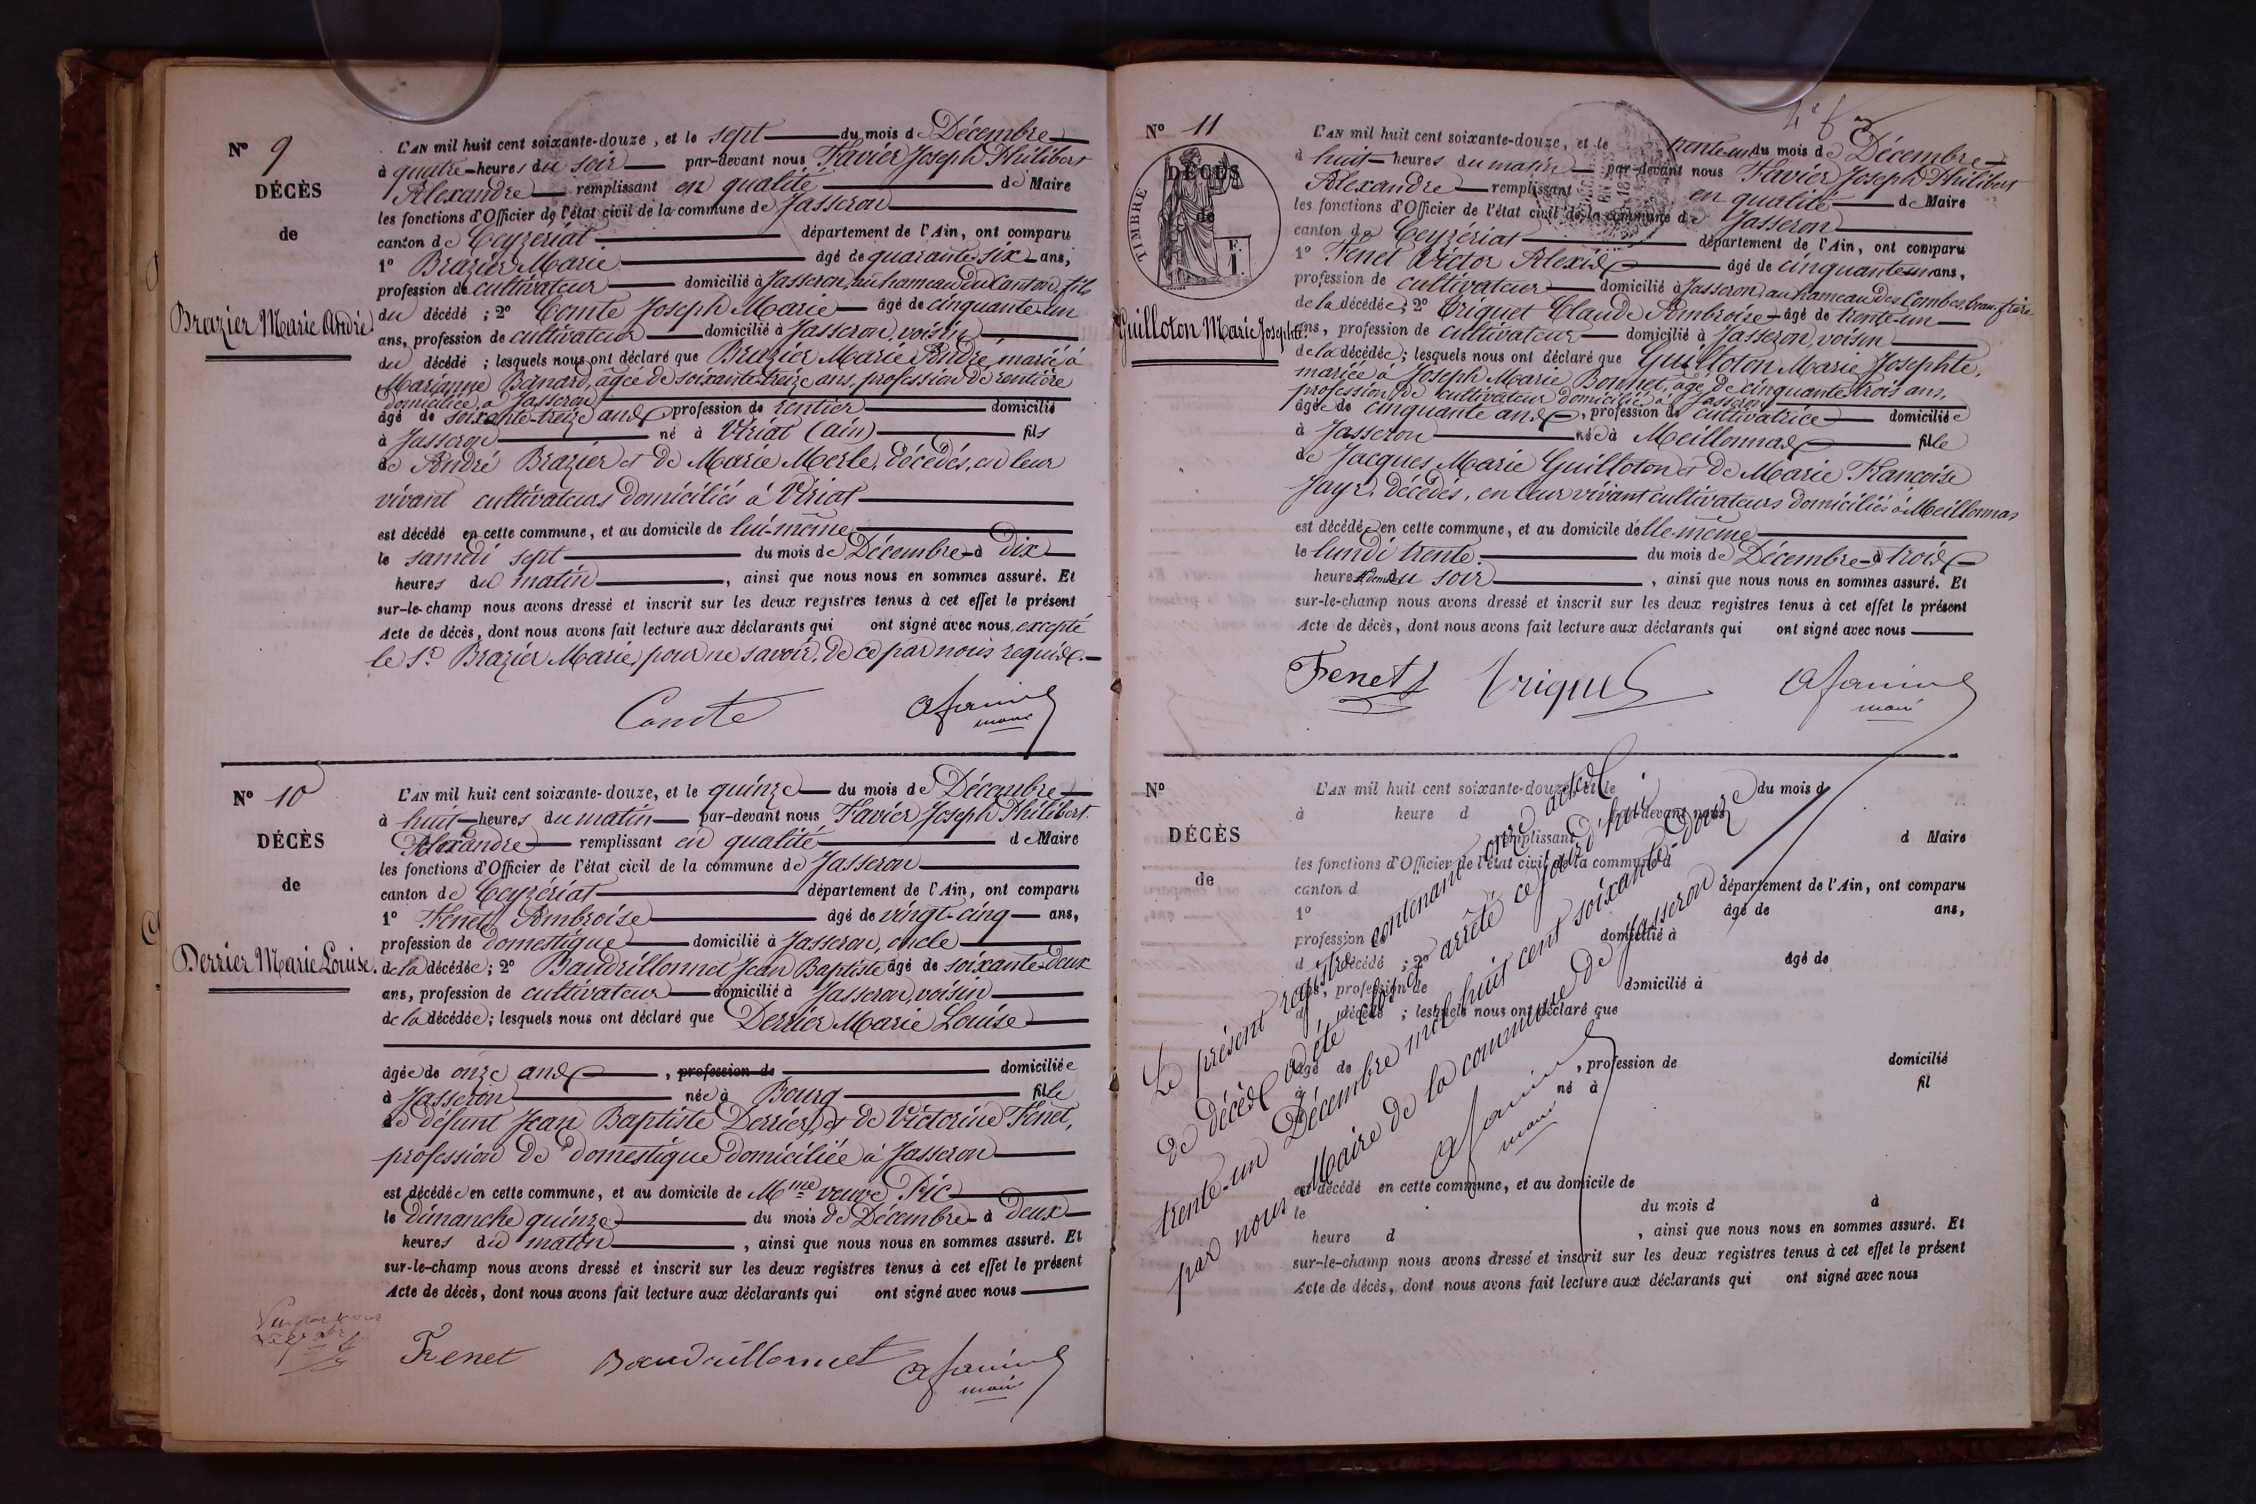 N° 9
DÉCÈS
de
Brazier Marie André
L'AN mil huit cent soixante-douze, et le sept du mois de Décembre
à quatre heures du soir par-devant nous Favier Joseph Philibert
Alexandre remplissant en qualité de Maire
les fonctions d'Officier de l'état civil de la commune de Jasseron
canton de Ceyzériat département de l'Ain, ont comparu
1° Brazier Marie âgé de quarante-six ans,
profession de cultivateur domicilié à Jasseron, au hameau du Canton, fils
du décédé ; 2° Comte Joseph Marie âgé de cinquante-un
ans, profession de cultivateur domicilié à Jasseron, voisin
du décédé ; lesquels nous ont déclaré que Brazier Marie André, marié à
Marianne Banard, âgée de soixante-treize ans, profession de rentière
domiciliée à Jasseron
âgé de soixante-treize ans profession de rentier domicilié
à Jasseron né à Viriat (ain) fils
de André Brazier et de Marie Merle, décédés, en leur
vivant cultivateurs domiciliés à Viriat
est décédé en cette commune, et au domicile de lui-même
le samedi sept du mois de Décembre à dix
heures du matin, ainsi que nous nous en sommes assuré. Et
sur-le-champ nous avons dressé et inscrit sur les deux registres tenus à cet effet le présent
Acte de décès, dont nous avons fait lecture aux déclarants qui ont signé avec nous, excepté
le Sr Brazier Marie, pour ne savoir, de ce par nous requis.
Comte afavier
maire
N° 10
DÉCÈS
de
Derrier Marie Louise.
L'AN mil huit cent soixante-douze, et le quinze du mois de Décembre
à huit heures du matin par-devant nous Favier Joseph Philibert
Alexandre remplissant en qualité de Maire
les fonctions d'Officier de l'état civil de la commune de Jasseron
canton de Ceyzériat département de l'Ain, ont comparu
1° Fenet Ambroise âgé de vingt-cinq ans,
profession de domestique domicilié à Jasseron, oncle
de la décédée ; 2° Baudrillonnet Jean Baptiste âgé de soixante-deux
ans, profession de cultivateur domicilié à Jasseron, voisin
de la décédée ; lesquels nous ont déclaré que Derrier Marie Louise
âgée de onze ans, profession de domiciliée
à Jasseron née à Bourg fille
de défunt Jean Baptiste Derrier, et de Victorine Fenet,
profession de domestique domiciliée à Jasseron
est décédée en cette commune, et au domicile de Mme veuve Pic
le dimanche quinze du mois de Décembre à deux
heures du matin, ainsi que nous nous en sommes assuré. Et
sur-le-champ nous avons dressé et inscrit sur les deux registres tenus à cet effet le présent
Acte de décès, dont nous avons fait lecture aux déclarants qui ont signé avec nous
Fenet Baudrillonnet afavier
maire
N° 11
TIMBRE
DÉCÈS
de
F.
1.
Guilloton Marie Josephte.
L'AN mil huit cent soixante-douze, et le trente-un du mois de Décembre
à huit heures du matin par-devant nous Favier Joseph Philibert
Alexandre remplissant en qualité de Maire
les fonctions d'Officier de l'état civil de la commune de Jasseron
canton de Ceyzériat département de l'Ain, ont comparu
1° Fenet Victor Alexis âgé de cinquante-un ans,
profession de cultivateur domicilié à Jasseron, au hameau des Combes, beau-frère
de la décédée ; 2° Triquet Claude Ambroise âgé de trente-un
ans, profession de cultivateur domicilié à Jasseron, voisin
de la décédée ; lesquels nous ont déclaré que Guilloton Marie Josephte,
mariée à Joseph Marie Bonnet, âgé de cinquante-trois ans,
profession de cultivateur domicilié à Jasseron
âgée de cinquante ans, profession de cultivatrice domiciliée
à Jasseron née à Meillonnas fille
de Jacques Marie Guilloton et de Marie Françoise
Jayr, décédés, en leur vivant cultivateurs domiciliés à Meillonnas
est décédée en cette commune, et au domicile d'elle-même
le lundi trente du mois de Décembre à trois
heures et demie du soir, ainsi que nous nous en sommes assuré. Et
sur-le-champ nous avons dressé et inscrit sur les deux registres tenus à cet effet le présent
Acte de décès, dont nous avons fait lecture aux déclarants qui ont signé avec nous
Fenet Triquet afavier
maire
N°
DÉCÈS
de
L'AN mil huit cent soixante-douze, et le du mois d
à heure d par-devant nous
remplissant d Maire
les fonctions d'Officier de l'état civil de la commune d
canton d département de l'Ain, ont comparu
1° âgé de ans,
profession de domicilié à
d décédé ; 2° âgé de
ans, profession de domicilié à
d décédé ; lesquels nous ont déclaré que
âgé de , profession de domicilié
à né à fil
d
est décédé en cette commune, et au domicile de
le du mois d à
heure d , ainsi que nous nous en sommes assuré. Et
sur-le-champ nous avons dressé et inscrit sur les deux registres tenus à cet effet le présent
Acte de décès, dont nous avons fait lecture aux déclarants qui ont signé avec nous
Le présent registre contenant onze actes
de décès a été clos et arrêté ce jourd'hui
trente-un Décembre mil huit cent soixante-douze
par nous Maire de la commune de Jasseron
afavier
maire